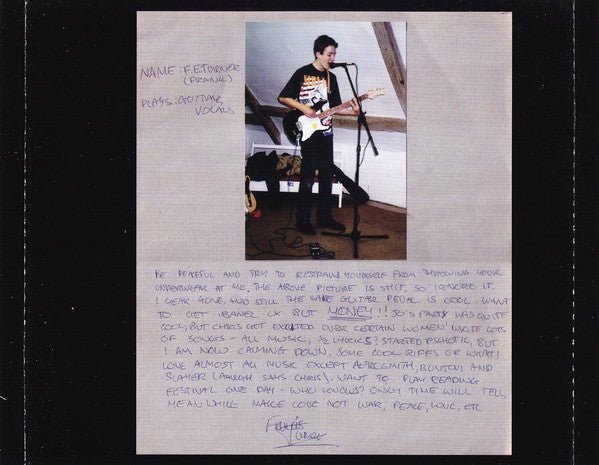 NAME: F.E. TURNER
(FRANK)
PLAYS: GUITAR,
VOCALS
BE FEARFUL AND TRY TO RESTRAIN YOURSELF FROM THROWING YOUR
UNDERWEAR AT ME. THE ABOVE PICTURE IS SHIT, SO IGNORE IT.
1 YEAR GONE, AND STILL THE SAME GUITAR PEDAL IS COOL. WANT
TO GET IBANEZ BUT MONEY!! JO'S PARTY WAS QUITE
COOL, BUT CHRIS GOT EXCITED OVER CERTAIN WOMEN! WRITE LOTS
OF SONGS - ALL MUSIC, ½ LYRICS? STARTED PSYCHOTIC, BUT
I AM NOW CALMING DOWN. SOME COOL RIFFS OR WHAT!
LOVE ALMOST ALL MUSIC EXCEPT AEROSMITH, BONJOVI AND
SLAYER (AARGH SAYS CHRIS). WANT TO PLAY READING
FESTIVAL ONE DAY - WHO KNOWS? ONLY TIME WILL TELL,
MEANWHILE MAKE LOVE NOT WAR, PEACE, LOVE, ETC.
Francis
Turner